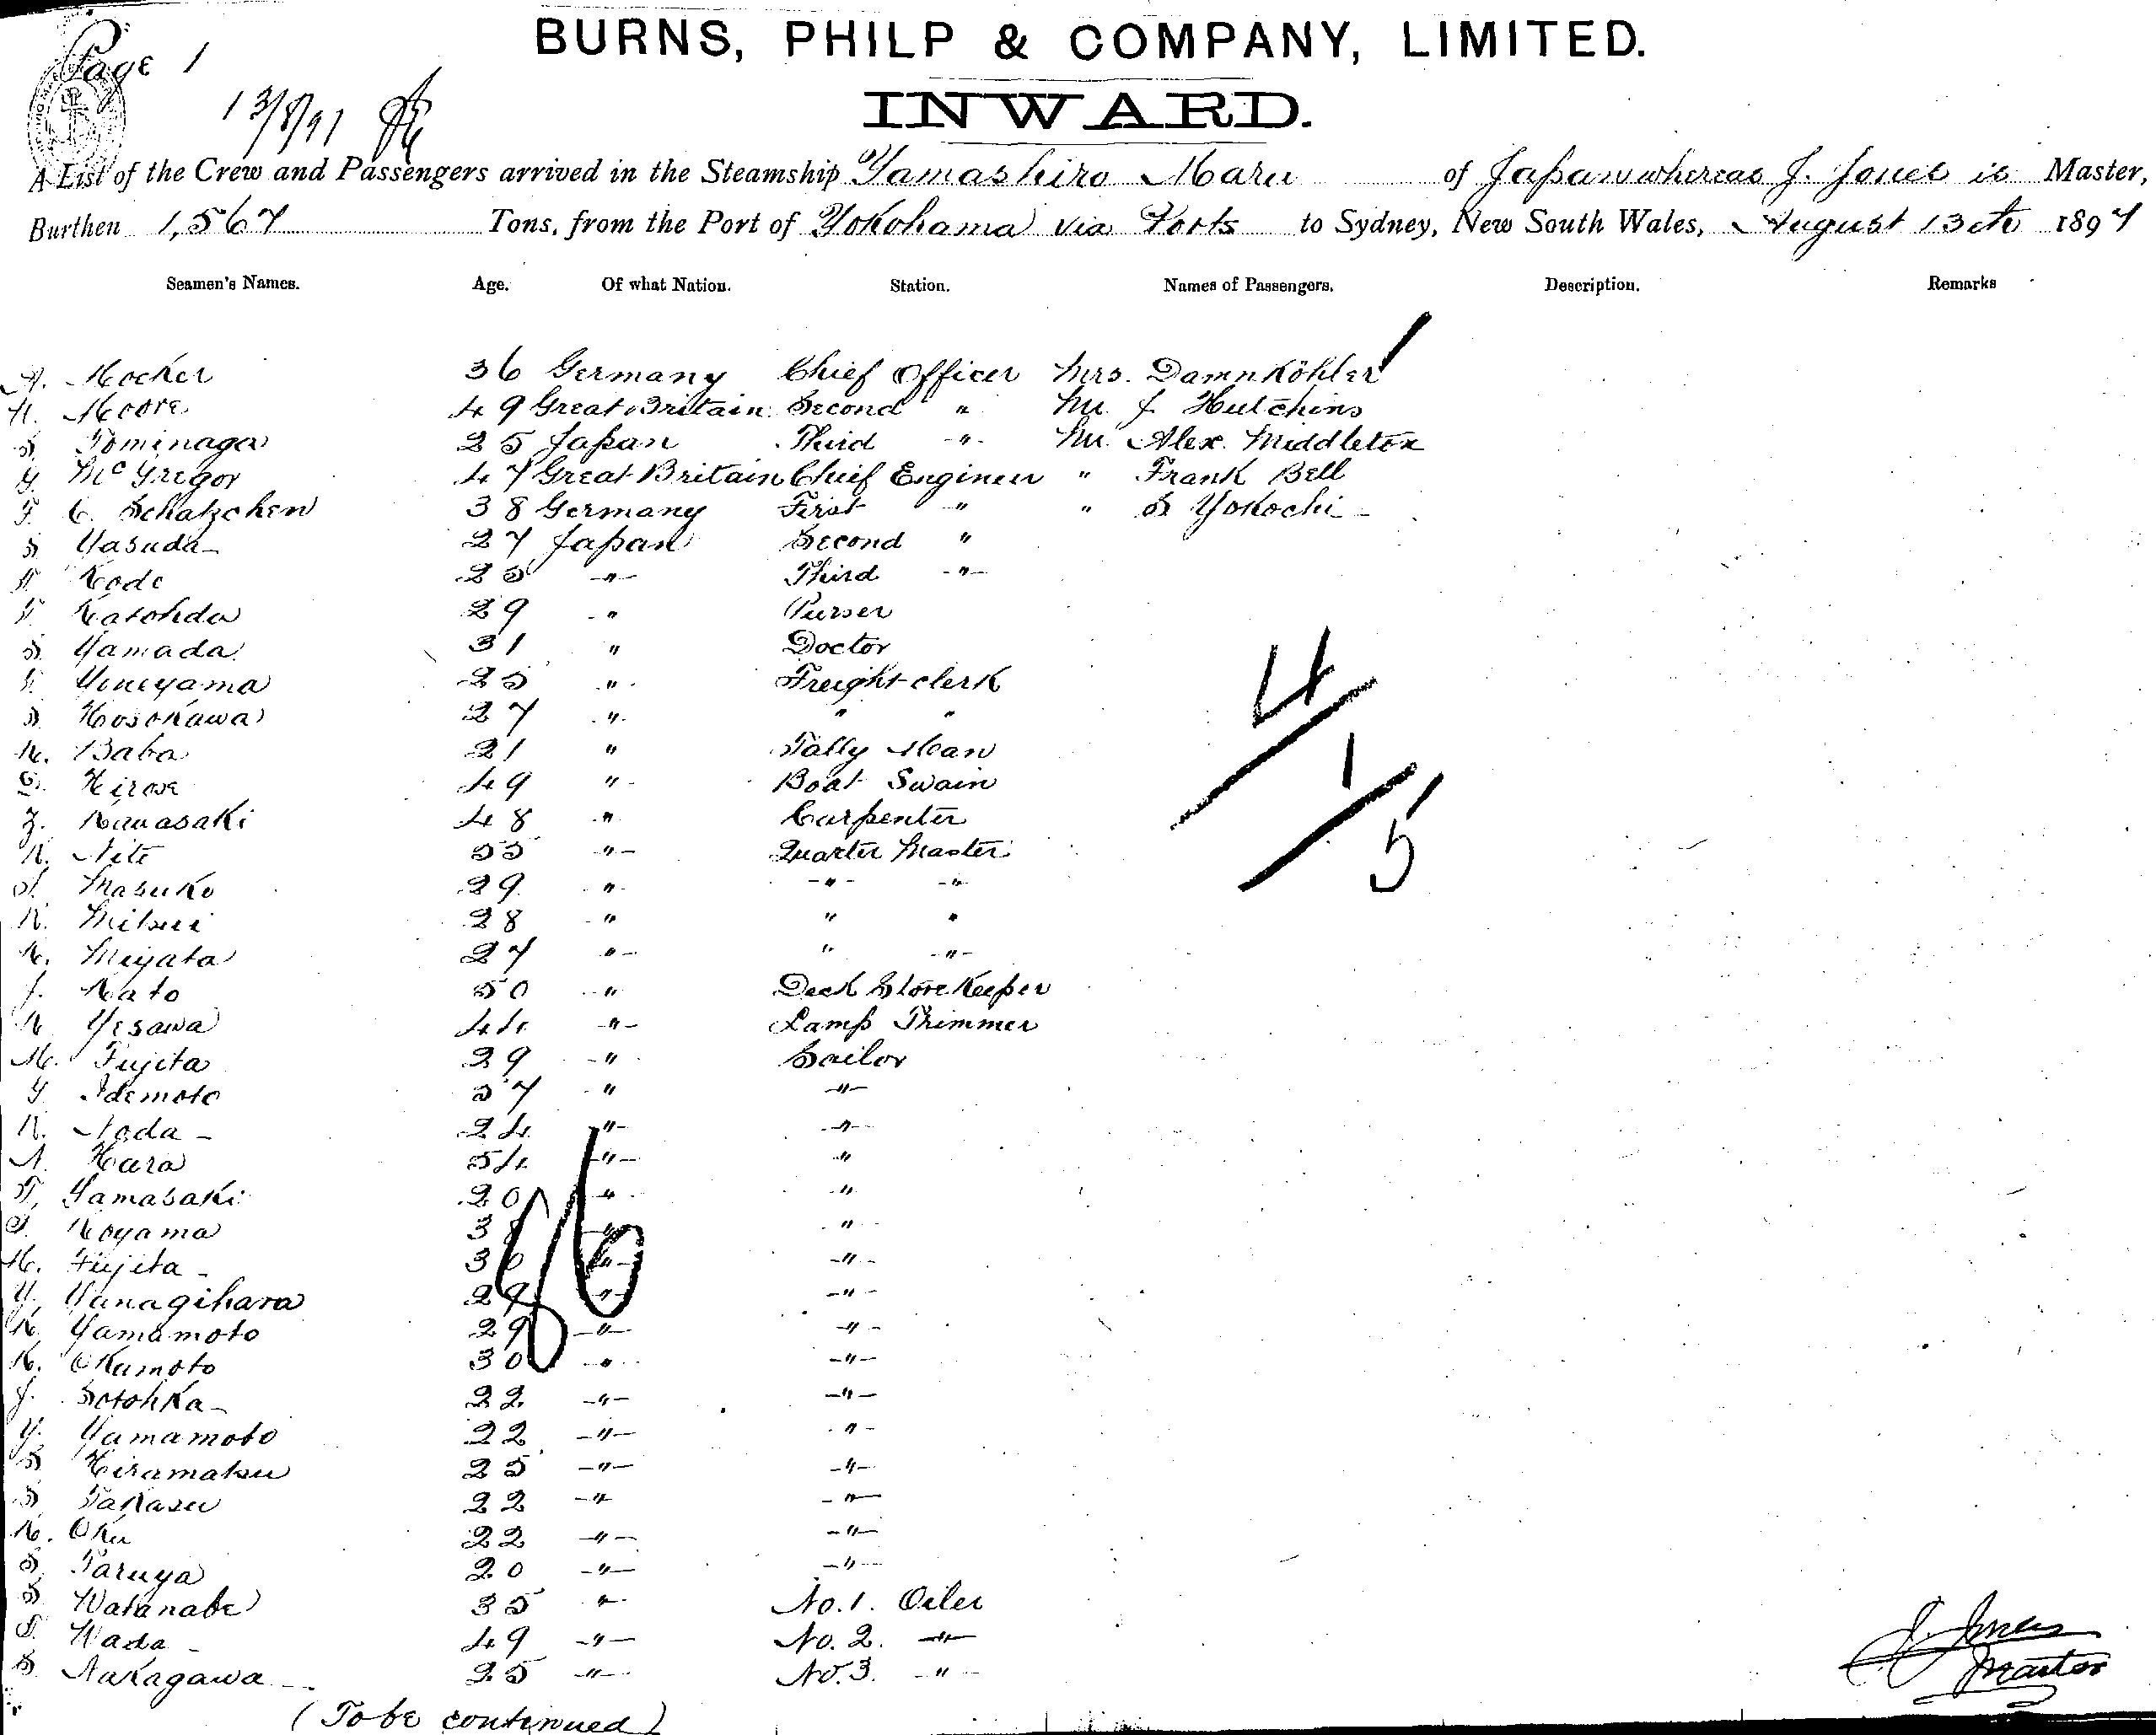 Page 1
BURNS, PHILP & COMPANY, LIMITED.
13/8/97
INWARD.
A List of the Crew and Passengers arrived in the Steamship Yamashiro Maru of Japan whereas J. Jones is Master,
Burthen 1,567 Tons, from the Port of Yokohama via Ports to Sydney, New South Wales, August 13th 1897
Seamen's Names. Age. Of what Nation. Station. Names of Passengers. Description. Remarks
A. Mocker 36 Germany Chief Officer Mrs. Damnköhler
H. Moore 49 Great Britain Second " Mr. J Hutchins
S. Tominaga 25 Japan Third " Mr. Alex. Middleton
G. McGregor 47 Great Britain Chief Engineer " Frank Bell
F. C. Schatzchen 38 Germany First " " S Yokochi
S Yasuda 27 Japan Second "
25 " Third "
29 " Purser
S. Yamada 31 " Doctor
Yoneyama 25 " Freight clerk
S. Hosokawa 27 " " "
K. Baba 21 " Tally Man
Hirose 49 " Boat Swain
Z. Kawasaki 48 " Carpenter
K. 55 " Quarter Master
Masuko 29 " " "
K. Mitsui 28 " " "
K. Miyata 27 " " "
J. Kato 50 " Deck Store Keeper
K Yesawa 44 " Lamp Trimmer
M. Fujita 29 " Sailor
Y Idemoto 57 " "
K. Noda 24 " "
Hara 54 " "
T. Yamasaki 20 " "
Koyama 38 " "
Fujita 30 " "
Y. Yanagihara 29 " "
K. Yamamoto 29 " "
K. Okamoto 30 " "
J. Sotohka 22 " "
Y. Yamamoto 22 " "
S Hiramatsu 25 " "
S Takasu 22 " "
K. Oku 22 " "
S. Taruya 20 " "
S Watanabe 35 " No. 1. Oiler
Wada 49 " No. 2. "
S. Nakagawa 25 " No. 3. "
4
1
5
J. Jones
Master
(To be continued)